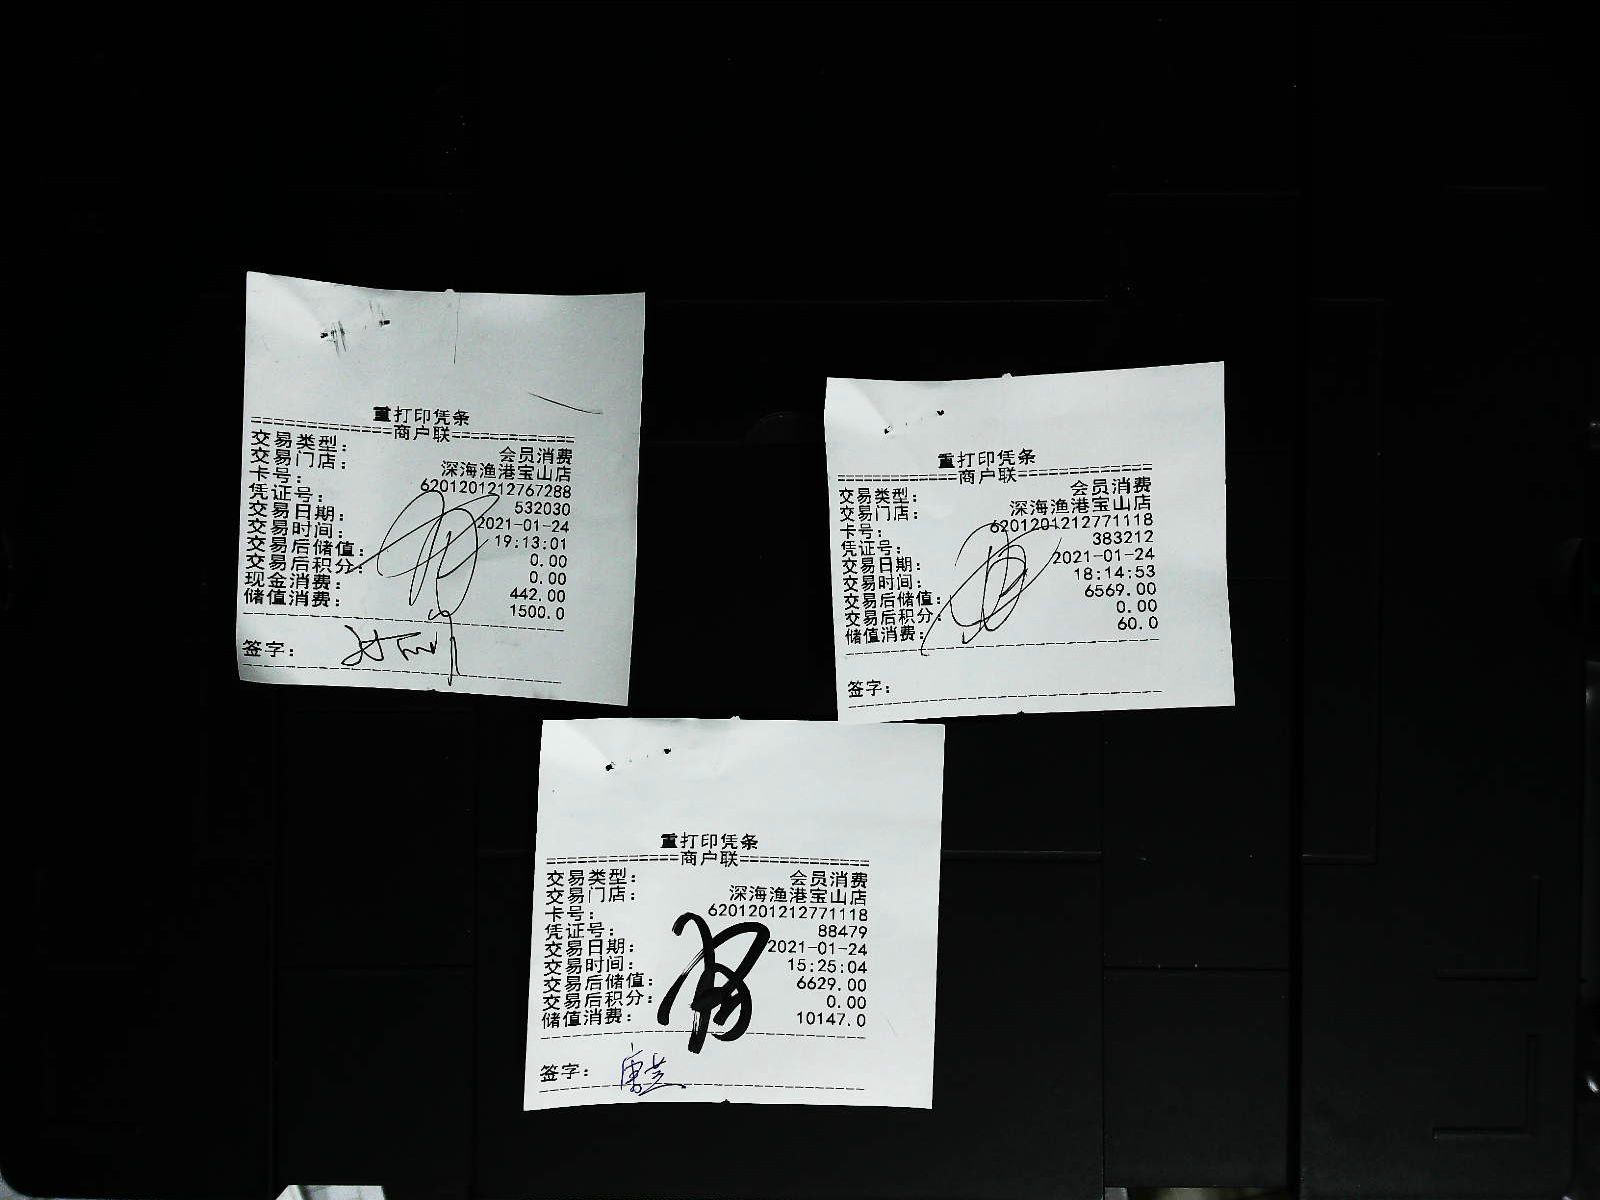 重打印凭条
============商户联============
交易类型： 会员消费
交易门店： 深海渔港宝山店
卡号： 6201201212767288
凭证号： 532030
交易日期： 2021-01-24
交易时间： 19:13:01
交易后储值： 0.00
交易后积分： 0.00
现金消费： 442.00
储值消费： 1500.0
签字：
重打印凭条
============商户联============
交易类型： 会员消费
交易门店： 深海渔港宝山店
卡号： 6201201212771118
凭证号： 383212
交易日期： 2021-01-24
交易时间： 18:14:53
交易后储值： 6569.00
交易后积分： 0.00
储值消费： 60.0
签字：
重打印凭条
============商户联============
交易类型： 会员消费
交易门店： 深海渔港宝山店
卡号： 6201201212771118
凭证号： 88479
交易日期： 2021-01-24
交易时间： 15:25:04
交易后储值： 6629.00
交易后积分： 0.00
储值消费： 10147.0
签字：